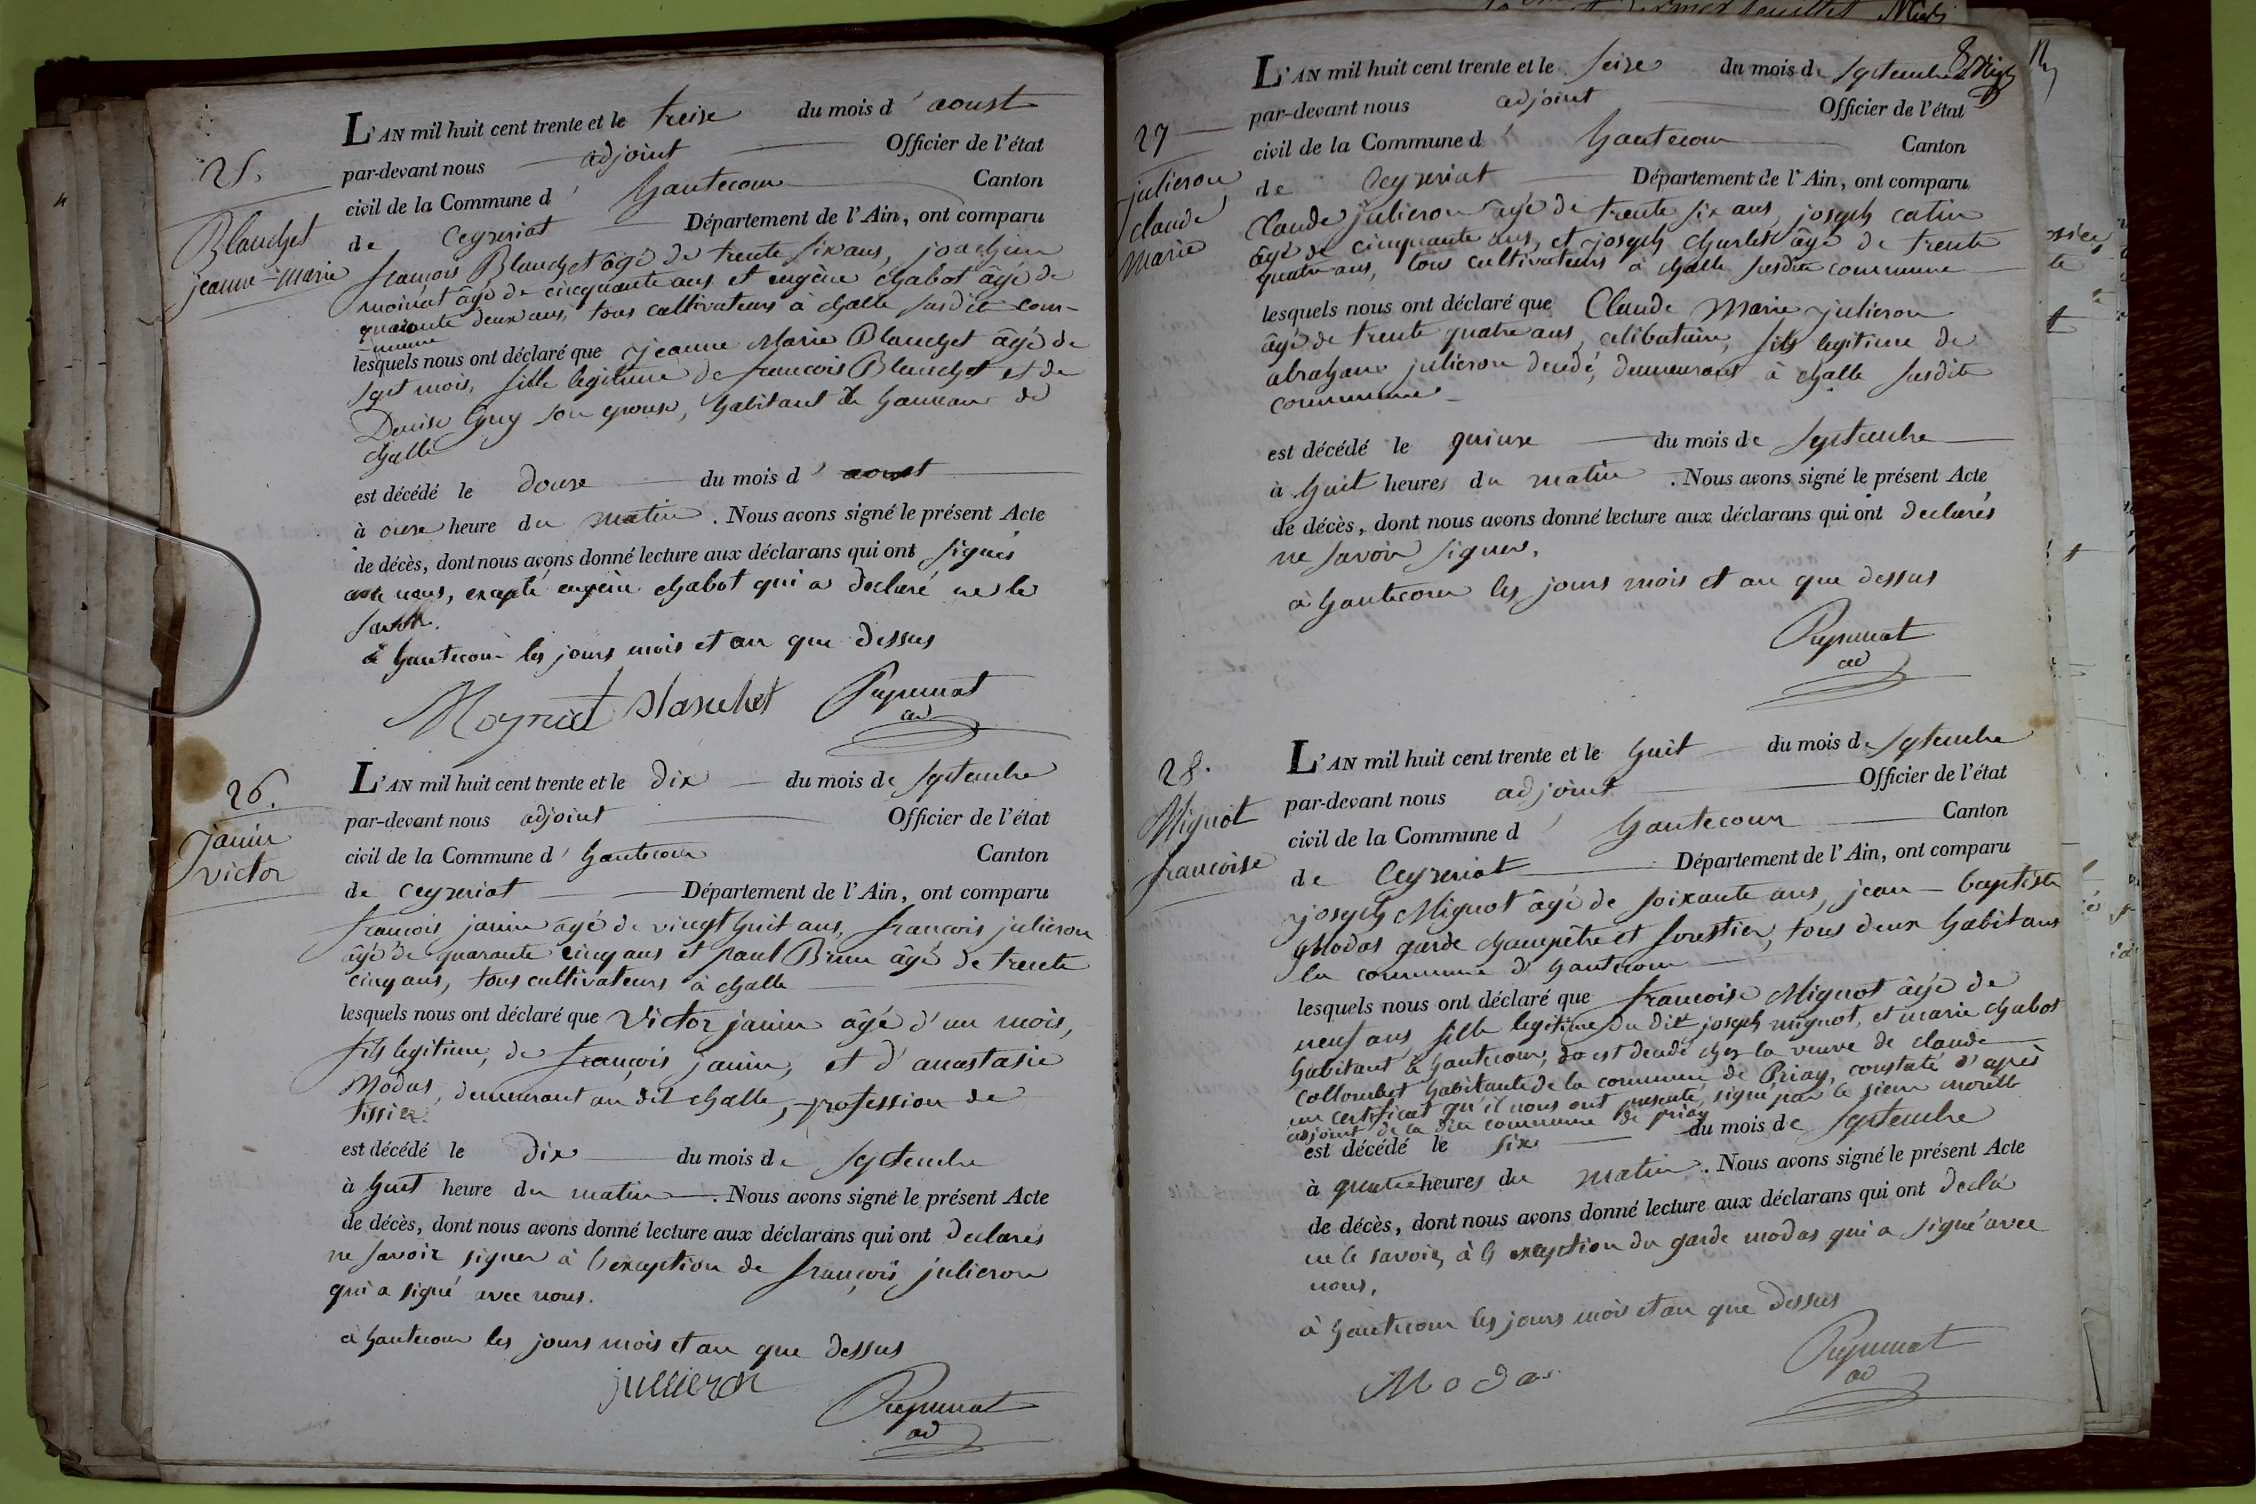 25.
Blanchet
jeanne-Marie
L'AN mil huit cent trente et le treise du mois d'aoust
par-devant nous adjoint Officier de l'état
civil de la Commune d'hautecour Canton
de Ceyzeriat Département de l'Ain, ont comparu
françois Blanchet âgé de trente six ans, joachim
moinat âgé de cinquante ans et eugène chabot âgé de
quarante deux ans, tous cultivateurs à challe susdite com-
-mune
lesquels nous ont déclaré que jeanne Marie Blanchet âgé de
sept mois, fille legitime de francois Blanchet et de
Denise Guy son epouse, habitant le hameau de
challe
est décédé le douse du mois d'aoust
à onse heure du matin. Nous avons signé le présent Acte
de décès, dont nous avons donné lecture aux déclarans qui ont signés
avec nous, excepté eugène chabot qui a declaré ne le
savoir.
à hautecour les jours mois et an que dessus
Moynat blanchet Puyunat
ad
26.
janin
victor
L'AN mil huit cent trente et le dix du mois de septembre
par-devant nous adjoint Officier de l'état
civil de la Commune d'hautecour Canton
de ceyzeriat Département de l'Ain, ont comparu
francois janin agé de vingt huit ans, francois julieron
âgé de quarante cinq ans et paul Brun âgé de trente
cinq ans, tous cultivateurs à challe
lesquels nous ont déclaré que victor janin âgé d'un mois,
fils legitime, de françois janin, et d'anastasie
Modas, demeurant au dit challe, profession de
tissier.
est décédé le dix du mois de septembre
à huit heure du matin. Nous avons signé le présent Acte
de décès, dont nous avons donné lecture aux déclarans qui ont declarés
ne savoir signer à l'exception de françois julieron
qui a signé avec nous.
à hautecour les jours mois et an que dessus
jullieron
Puyunat
ad
8
27
julieron
claude
marie
L'AN mil huit cent trente et le seise du mois de septembre
par-devant nous adjoint Officier de l'état
civil de la Commune d'hautecour Canton
de Ceyzeriat Département de l'Ain, ont comparu
Claude julieron âgé de trente six ans, joseph catin
âgé de cinquante ans, et joseph charles âgé de trente
quatre ans, tous cultivateurs à challe susdite commune
lesquels nous ont déclaré que Claude Marie julieron
âgé de trente quatre ans, celibataire, fils legitime de
abraham julieron decedé, demeurant à challe susdite
commune
est décédé le quinse du mois de septembre
à huit heures du matin. Nous avons signé le présent Acte
de décès, dont nous avons donné lecture aux déclarans qui ont declarés
ne savoir signer.
à hautecour les jours mois et an que dessus
Puyunat
ad
28.
Mignot
francoise
L'AN mil huit cent trente et le huit du mois de septembre
par-devant nous adjoint Officier de l'état
civil de la Commune d'hautecour Canton
de Ceyzeriat Département de l'Ain, ont comparu
joseph Mignot âgé de soixante ans, jean-baptiste
modas garde champêtre et forestier, tous deux habitans
la commune d'hautecour
lesquels nous ont déclaré que francoise Mignot âgé de
neuf ans fille legitime du dit joseph mignot, et marie chabot
habitant à hautecour, est decedé chez la veuve de claude
collombet habitante de la commune de Priay, constaté d'après
un certificat qu'il nous ont presenté, signé par le sieur morelle
adjoint de la dite commune de priay
est décédé le six du mois de septembre
à quatre heures du matin. Nous avons signé le présent Acte
de décès, dont nous avons donné lecture aux déclarans qui ont decla
ne le savoir, à l'exception du garde modas qui a signé avec
nous.
à hautecour les jours mois et an que dessus
Modas
Puyunat
ad